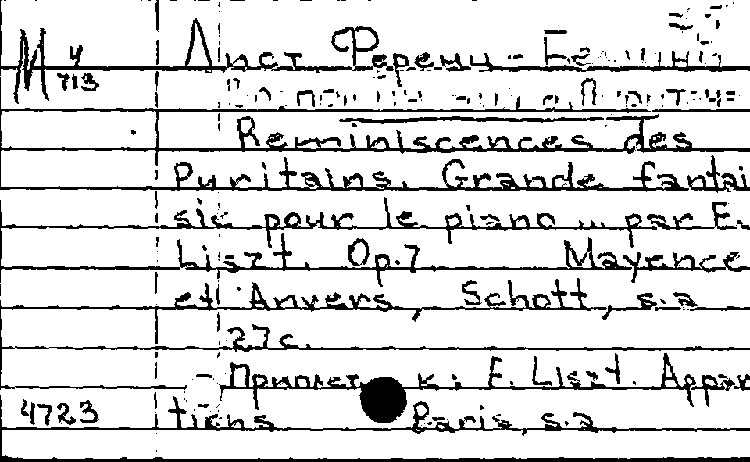 М 4/713
Лист Ференц - Беллини
Reminiscences des
Puritains. Grande fantai
sie pour le piano ... par F.
Liszt. Op.7 Mayence
et Anvers, Schott, s.a
27с.
- Приплет к: F. Liszt. Appari
tions Paris, s.a.
4723